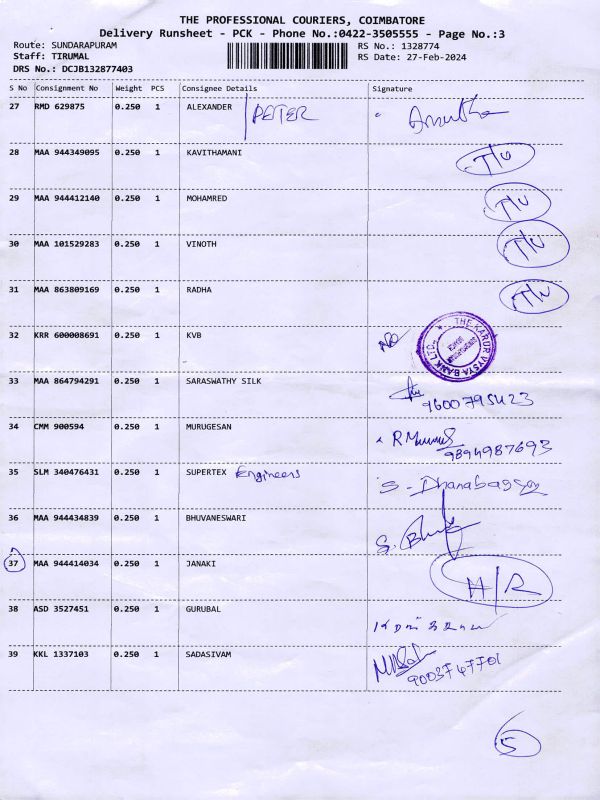 THE PROFESSIONAL COURIERS, COIMBATORE
Delivery Runsheet - PCK - Phone No.:0422-3505555 - Page No.:3
Route: SUNDARAPURAM RS No.: 1328774
Staff: TIRUMAL RS Date: 27-Feb-2024
DRS No.: DCJB132877403
S No Consignment No Weight PCS Consignee Details Signature
27 RMD 629875 0.250 1 ALEXANDER PETER
28 MAA 944349095 0.250 1 KAVITHAMANI
29 MAA 944412140 0.250 1 MOHAMRED
30 MAA 101529283 0.250 1 VINOTH
31 MAA 863809169 0.250 1 RADHA
32 KRR 600008691 0.250 1 KVB THE KARUR VYSYA BANK LTD
33 MAA 864794291 0.250 1 SARASWATHY SILK
9600795423
34 CMM 900594 0.250 1 MURUGESAN
9894987693
35 SLM 340476431 0.250 1 SUPERTEX Engineers
36 MAA 944434839 0.250 1 BHUVANESWARI
37 MAA 944414034 0.250 1 JANAKI H/R
38 ASD 3527451 0.250 1 GURUBAL
39 KKL 1337103 0.250 1 SADASIVAM
9003747701
5